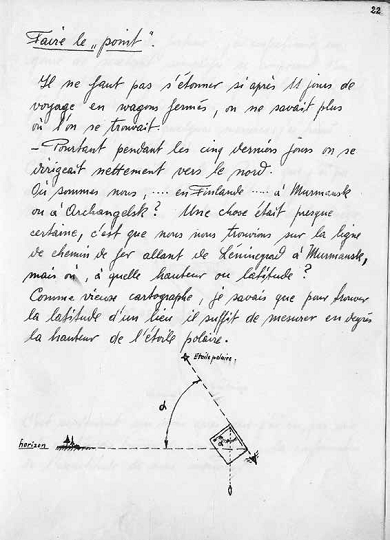 22
Faire le „point".
Il ne faut pas s'étonner si après 11 jours de
voyage en wagons fermés, on ne savait plus
où l'on se trouvait.
– Pourtant pendant les cinq derniers jours on se
dirigeait nettement vers le nord.
Où sommes nous, .... en Finlande ..... à Murmansk
ou à Archangelsk? Une chose était presque
certaine, c'est que nous nous trouvions sur la ligne
de chemin de fer allant de Léningrad à Murmansk,
mais où, à quelle hauteur ou latitude?
Comme vieux cartographe, je savais que pour trouver
la latitude d'un lieu il suffit de mesurer en degrés
la hauteur de l'étoile polaire.
Etoile polaire.
α
horizon